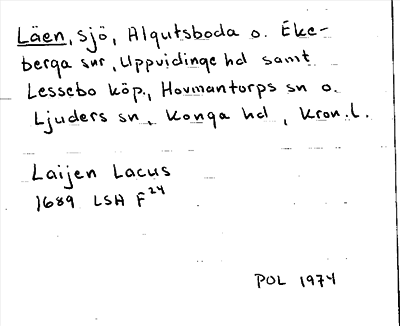 Läen, sjö, Algutsboda o. Eke-
berga snr, Uppvidinge hd samt
Lessebo köp., Hovmantorps sn o.
Ljuders sn, Konga hd, Kron. l.
Laijen Lacus
1689 LSA F24
POL 1974